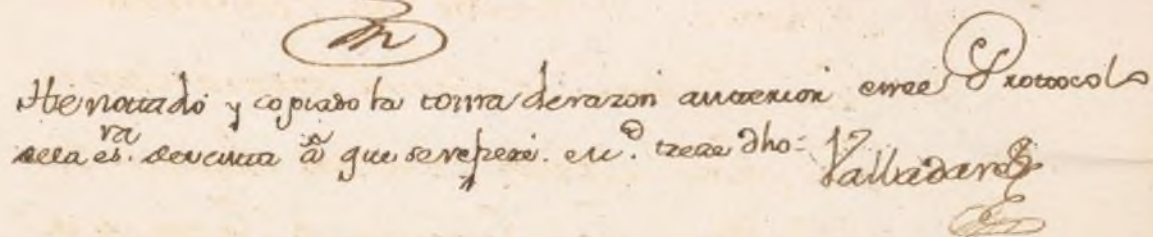 He nottado y copiado la toma de razon anterior en el Protocolo
de la es.ra de venta â que se refiere. en.o treze dho=
Valladares